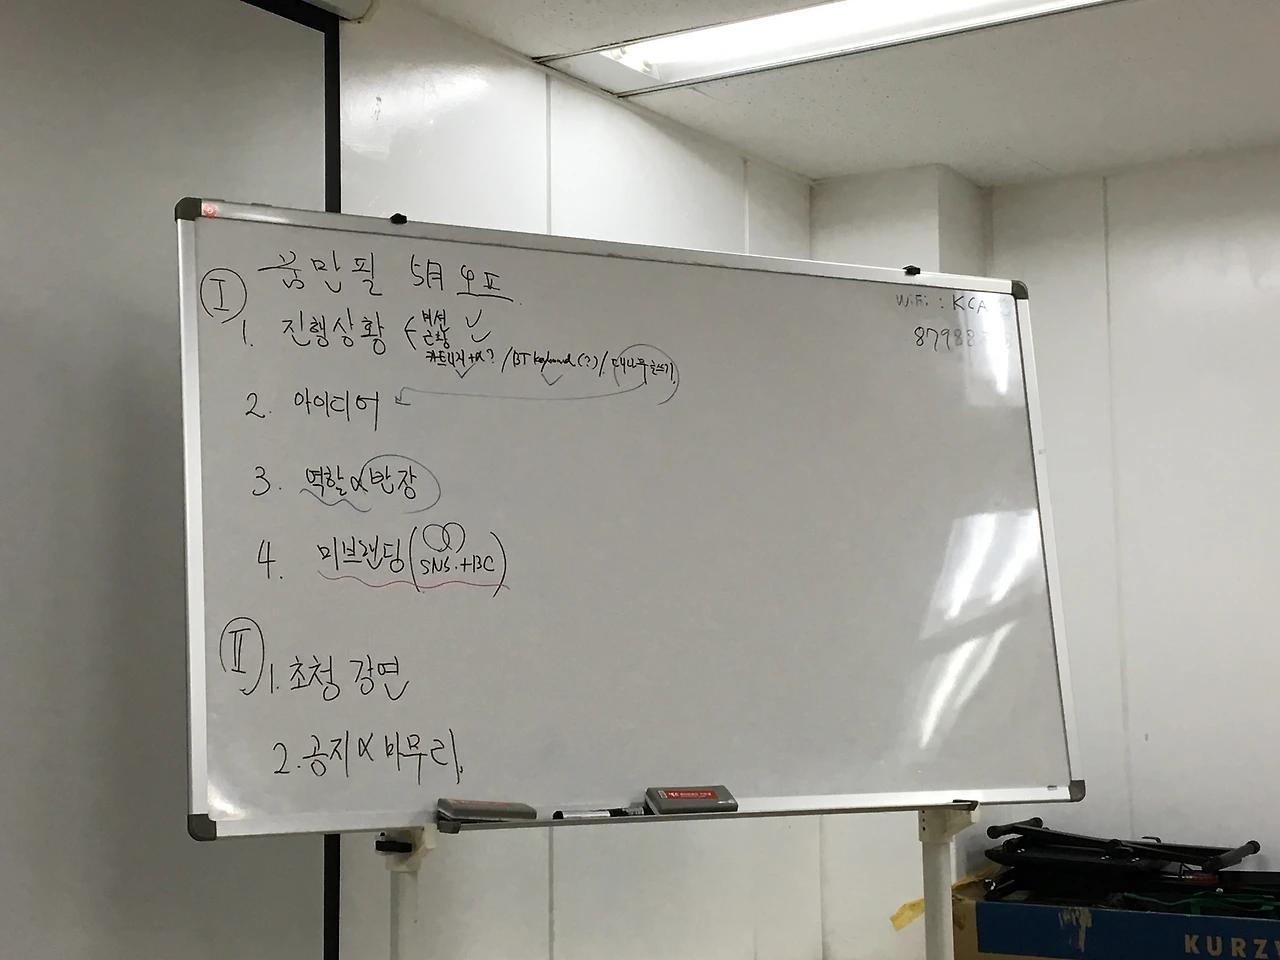 꿈만필 5月 오프
I
1. 진행상황 ( 버전
근황
카트리지 +α? / BT Keyboard (?) / 대나무 글쓰기
2. 아이디어
3. 역할 & 반장
4. 미브랜딩 ( SNS. + BC )
II
1. 초청 강연
2. 공지 & 마무리.
WiFi : KCA
KURZ